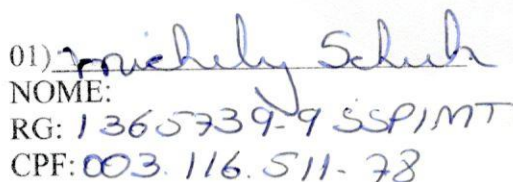 01) Michely Schuh
NOME:
RG: 1365739-9 SSP/MT
CPF: 003.116.511-78